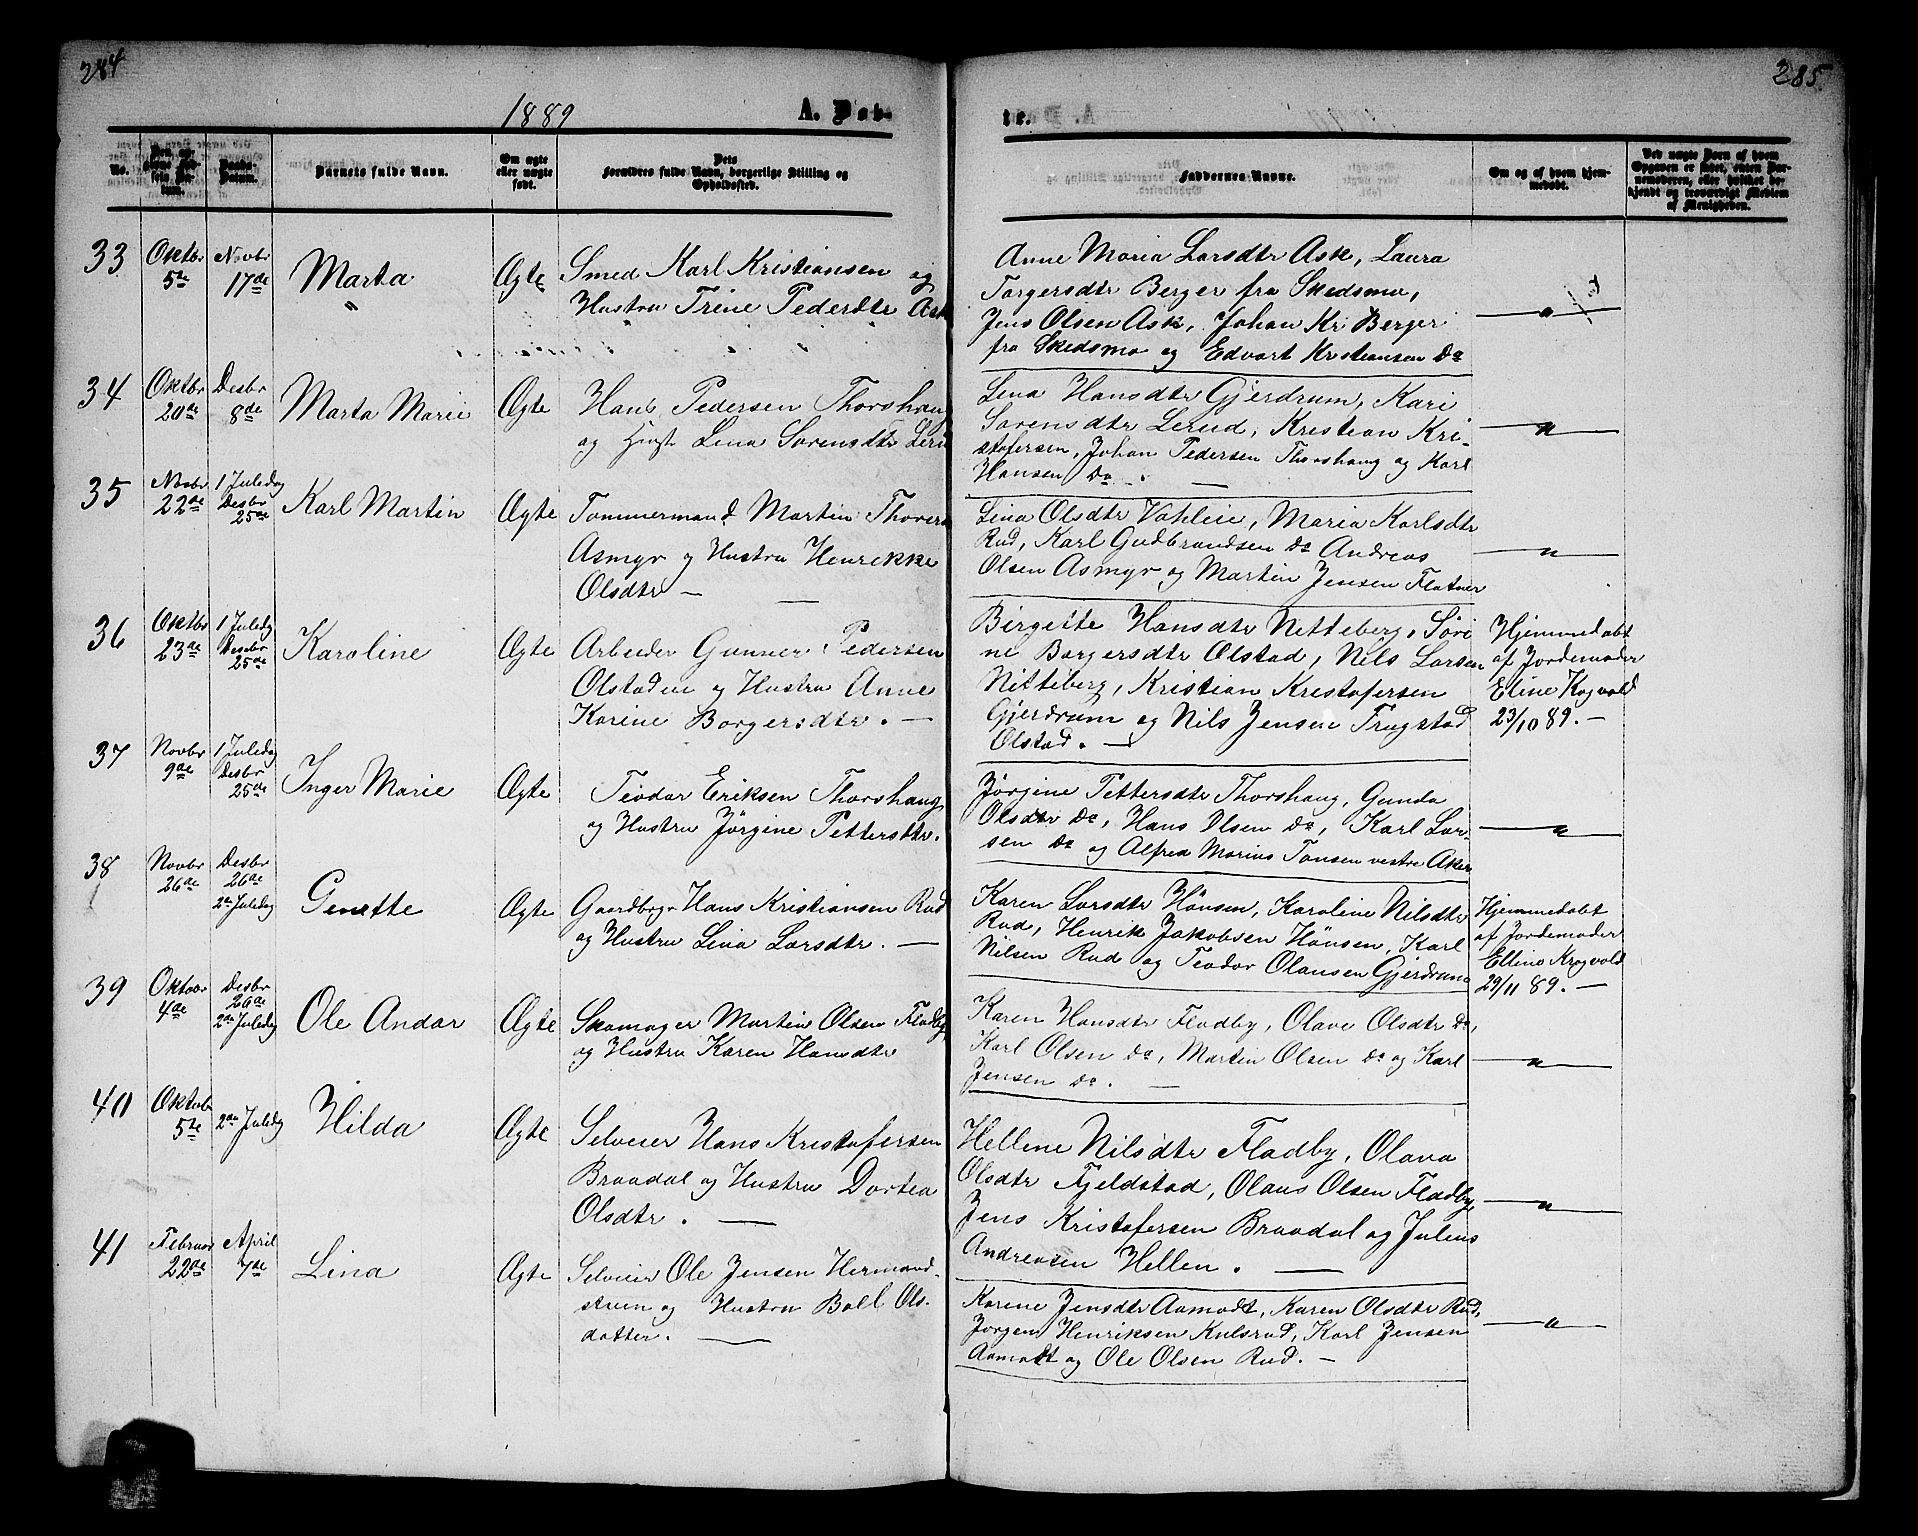 284
285.
1889
A. Døb-
te.
No.
Barnets fulde Navn.
Om ægte
eller uægte
født.
Dets
Forældres fulde Navn, borgerlige Stilling og
Opholdssted.
Faddernes Navne.
Om og af hvem hjem-
medøbt.
Ved uægte Børn af hvem
Opgaven er skeet, enten Bar-
nemoderen, eller hvilket be-
kjendt og troværdigt Medlem
af Menigheden.
33
Oktbr
5te
Novbr
17de
Marta
Ægte
Smed Karl Kristiansen og
Hustru Trine Pedersdtr Ask
Anne Maria Larsdtr Ask, Laura
Torgersdtr Berger fra Skedsmo,
Jens Olsen Ask, Johan Kr Berger
fra Skedsmo og Edvart Kristiansen Do
34
Oktbr
20de
Desbr
8de
Marta Marie
Ægte
Hans Pedersen Thorshaug
og Hust Lina Sorensdtr Lerud
Lena Hansdtr Gjerdrum, Kari
Sorensdtr Lerud, Kristian Kri-
stofersen, Johan Pedersen Thorshaug og Karl
Hansen Do. —
35
Novbr
22de
1 Juledag
Desbr
25de
Karl Martin
Ægte
Tømmermand Martin
Asmyr og Hustru Henrikke
Olsdtr —
Lina Olsdtr Maria Karlsdtr
Rud, Karl Gudbrandsen Do Andreas
Olsen Asmyr og Martin Jensen Flatner
36
Oktbr
23de
1 Juledag
Desbr
25de
Karoline
Ægte
Arbeider Gunner Pedersen
Olstadeie og Hustru Anne
Karine Borgersdtr. —
Birgette Hansdtr Nitteberg, Søri
ne Borgersdtr Olstad, Nils Larsen
Nitteberg, Kristian Kristofersen
Gjerdrum og Nils Jensen Trugstad
Olstad. —
Hjemmedøbt
af Jordemoder
Eline Kogvold
23/10 89. —
37
Novbr
9de
1 Juledag
Desbr
25de
Inger Marie
Ægte
Teodor Eriksen Thorshaug
og Hustru Jørgine Pettersdtr.
Jørgine Pettersdtr Thorshaug, Gunda
Olsdtr Do, Hans Olsen Do, Karl Lar-
sen Do og Alfred Marius Tonsen vestre Aker
38
Novbr
26de
Desbr
26de
2den Juledag
Genette
Ægte
Gaardbgr Hans Kristiansen Rud
og Hustru Lina Larsdtr. —
Karen Larsdtr Hönsen, Karoline Nilsdtr
Rud, Henrik Jakobsen Hönsen, Karl
Nilsen Rud og Teodor Olausen Gjerdrum
Hjemmedøbt
af Jordemoder
Elline Krogvold
29/11 89. —
39
Oktbr
4de
Desbr
26de
2den Juledag
Ole Andor
Ægte
Skomager Martin Olsen Fladby
og Hustru Karen Hansdtr
Karen Hansdtr Fladby, Olave Olsdtr Do,
Karl Olsen Do, Martin Olsen Do og Karl
Jensen Do. —
40
Oktobr
5te
2den Juledag
Hilda
Ægte
Selveier Hans Kristofersen
Braadal og Hustru Dortea
Olsdtr. —
Hellene Nilsdtr Fladby, Olava
Olsdtr Fjeldstad, Olaus Olsen Fladby,
Jens Kristofersen Braadal og Julius
Andreasen Hellen. —
41
Februar
22de
April
7de
Lina
Ægte
Selveier Ole Jensen Hermand-
stuen og Hustru Boll Ols-
datter. —
Karene Jensdtr Aamodt, Karen Olsdtr Rud,
Jørgen Henriksen Kulsrud, Karl Jensen
Aamodt og Ole Olsen Rud. —